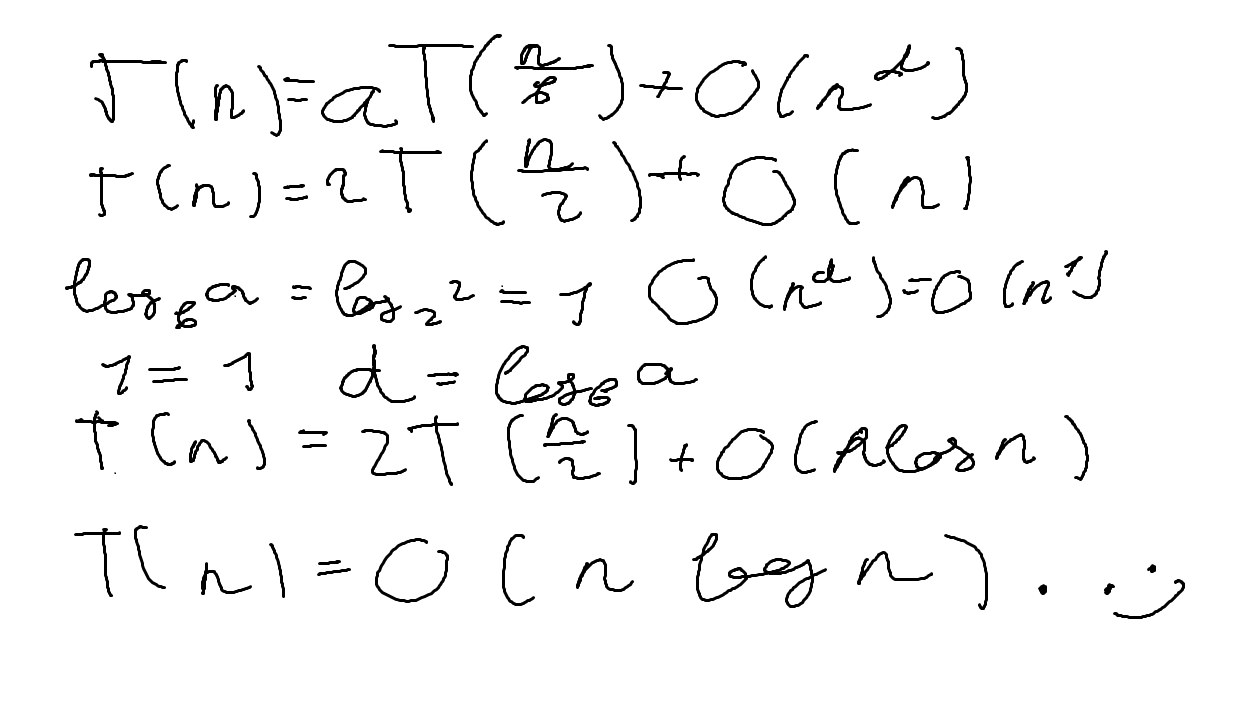 T(n)=aT(n/b)+O(n^d)
T(n)=2T(n/2)+O(n)
log_b a = log_2 2 = 1 O(n^d)=O(n^1)
1=1 d=log_b a
T(n)=2T(n/2)+O(n log n)
T(n)=O(n log n). :)